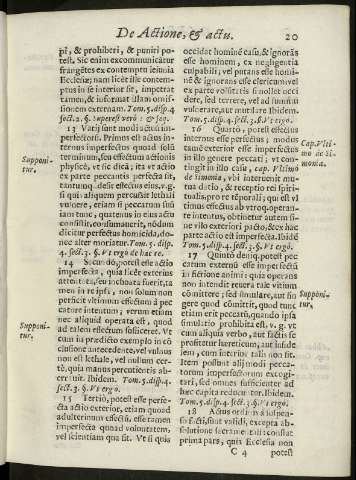 De Actione, & actu. 20
pi, & prohiberi, & puniri po-
test. Sic enim excommunicatur
frangētes ex contemptu ieiunia
Ecclesiæ; nam licèt ille contem-
ptus in se interiùs sit, imperat
tamen, & informat illam omis-
sionem externam. Tom. 5. disp. 4
sect. 2. §. Superest verò: & seq.
13 Varij sunt modi actuū im-
perfectorū. Primus est actus in-
ternus imperfectus quoad solū
terminum, seu effectum actionis
physicè, vt sic dicā; ita vt actio
ex parte peccantis perfecta sit,
tantumq́. desit effectus eius, v. g.
si qui: aliquem percussit lethali
vulnere, etiamsi peccatum suū
iam tunc, quatenus in eius actu
consistit, consumauerit, nōdum
dicitur perfectus homicida, do-
nec alter moriatur. Tom. 5. disp.
4. sect. 3. §. Vt ergo de hac re.
Supponi-
tur.
14 Secundò, potest esse actio
imperfecta, quia licèt exterius
attentata, seu inchoata fuerit, ta-
men in re ipsa, non solum non
perficit vltimum effectum à pec-
cature intentum; verùm etiam
nec aliquid operata est, quod
ad talem effectum sufficeret. Vt
cum in prædicto exemplo in cō
clusione antecedente, vel vulnus
non est lethale, vel nullum cer-
tè, quia manus percutientis ab-
errauit. Ibidem. Tom. 5. disp. 4.
sect. 3. §. Vt ergo.
Supponi-
tur.
15 Tertiò, potest esse perfe-
cta actio exterior, etiam quoad
adulterinum effectū, esse tamen
imperfecta quoad voluntatem,
vel scientiam quæ sit. Vt si quis
occidat hominē casu, & ignorās
esse hominem, ex negligentia
culpabili; vel putans esse homi-
nē & ignorans esse clericum; vel
ex parte volūtatis si nollet occi-
dere, sed terrere, vel ad summū
vulnerare, aut mutilare. Ibidem.
Tom. 5. disp. 4. sect. 3. §. Vt ergo.
16 Quartò, potest effectus
internus esse perfectus; modus
tamē exterior esse imperfectus
in illo genere peccati; vt con-
tingit in illo casu, cap. Vltimo
de simonia, vbi interuenit mu-
tua datio, & receptio rei spiri-
tualis pro tēporali; qui est vl-
timus effectus ab vtroq́. operan-
te intentus, obtinetur autem si-
ne vllo exteriori pacto, & ex hac
parte actio est imperfecta. Ibidē
Tom. 5. disp. 4. sect. 3. §. Vt ergo.
Cap. Vlti-
mo de Si-
monia.
17 Quintò deniq́. potest pec-
catum externū esse imperfectū
in fictione animi: quia operans
non intendit reuera tale vitium
cōmittere; sed simulare, aut fin-
gere quod cōmittit, quod tunc
etiam erit peccatū, quando ipsa
simulatio prohibita est, v. g. vt
cum aliquis verbo, aut factis se
profitetur hæreticum, aut infide
lem; cum interior talis non sit.
Item possunt alij modi pecca-
torum imperfectorum excogi-
tari, sed omnes sufficienter ad
hæc capita reducuntur. Ibidem.
Tom. 5. disp. 4. sect. 3. §. Vt ergo.
Supponi-
tur.
18 Actus ordinū à suspen-
so facti, sunt validi, excepta ab-
solutione sacramentali: constat
prima pars, quia Ecclesia non
C 4 potest